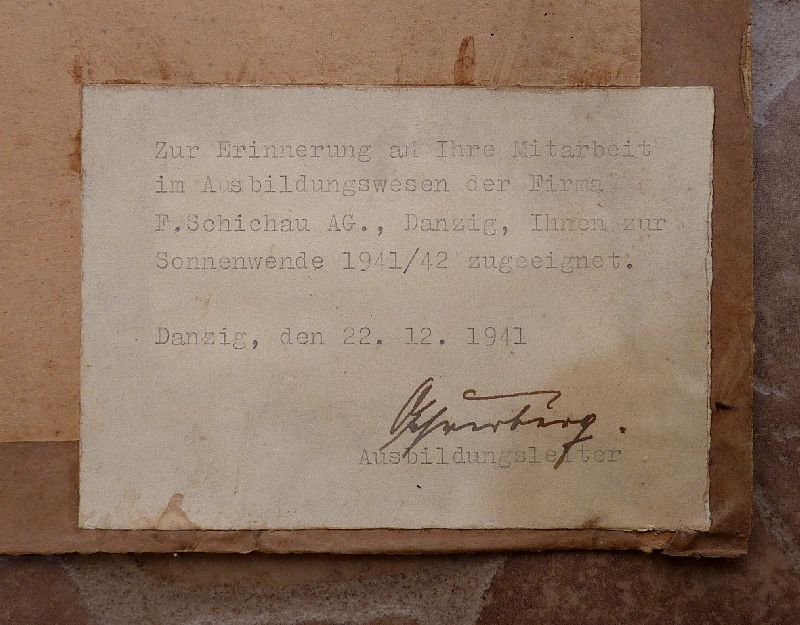 Zur Erinnerung an Ihre Mitarbeit
im Ausbildungswesen der Firma
F.Schichau AG., Danzig, Ihnen zur
Sonnenwende 1941/42 zugeeignet.
Danzig, den 22. 12. 1941
Ausbildungsleiter